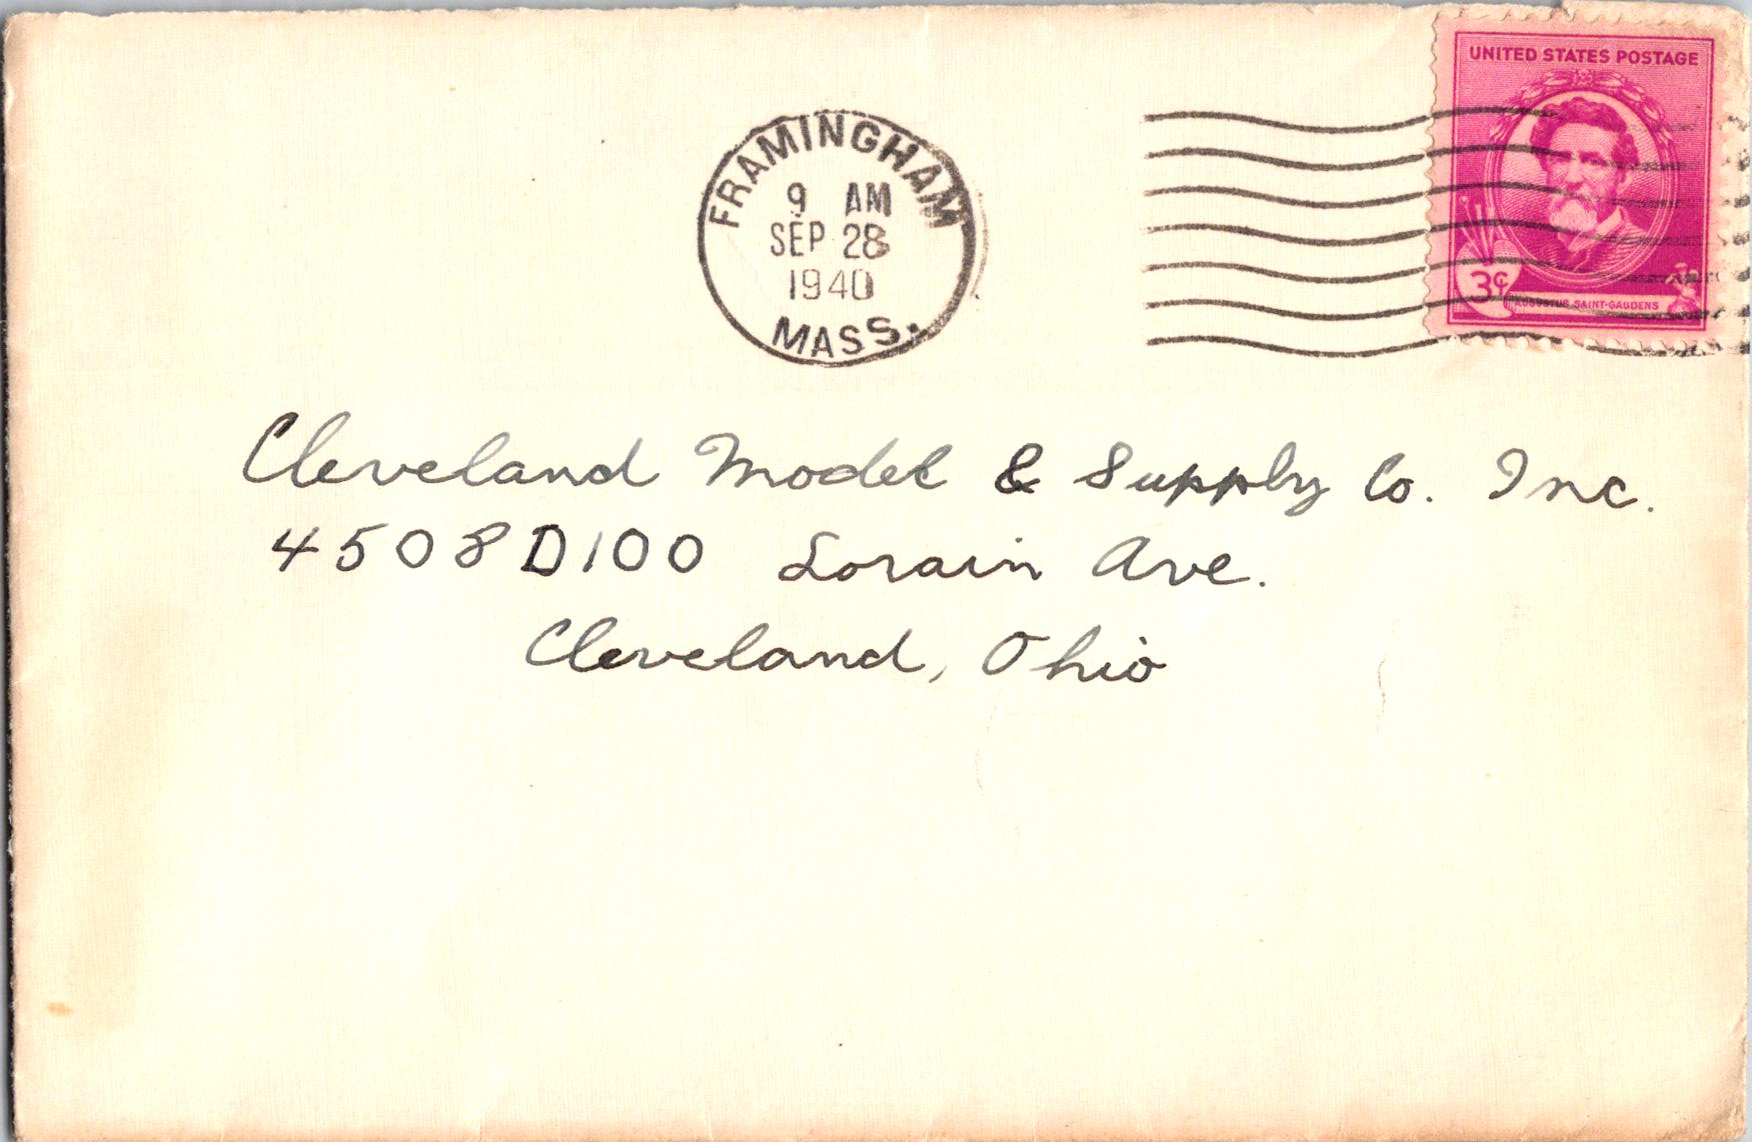 UNITED STATES POSTAGE
FRAMINGHAM
9 AM
SEP 28
1940
MASS.
3¢
AUGUSTUS SAINT-GAUDENS
Cleveland Model & Supply Co. Inc.
4508D100 Lorain Ave.
Cleveland, Ohio